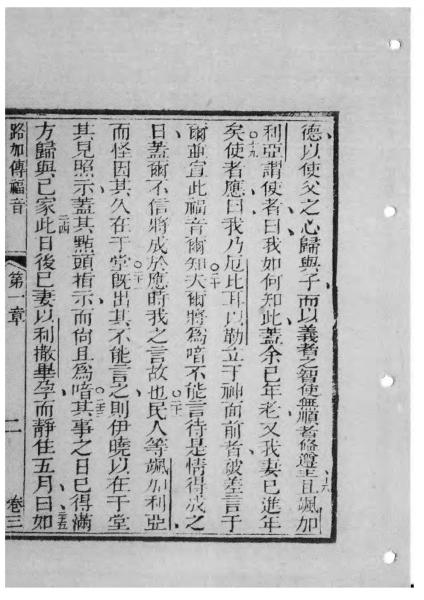 德以使父之心歸與子而以義者之智使無順者修遵主且颯加
利亞謂使者曰我如何知此蓋余已年老又我妻已進年
矣使者應曰我乃厄比耳以勒立于神面前者被差言于
爾並宣此福音爾知夫爾將為喑不能言待是情得成之
日蓋爾不信將成於應時我之言故也民人等颯加利亞
而怪因其久在于堂旣出其不能言之則伊曉以在于堂
其見照示蓋其點頭指示而尚且為喑其事之日已得滿
方歸與己家此日後已妻以利撒畢孕而靜住五月曰如
路加傳福音 第一章 二 卷三